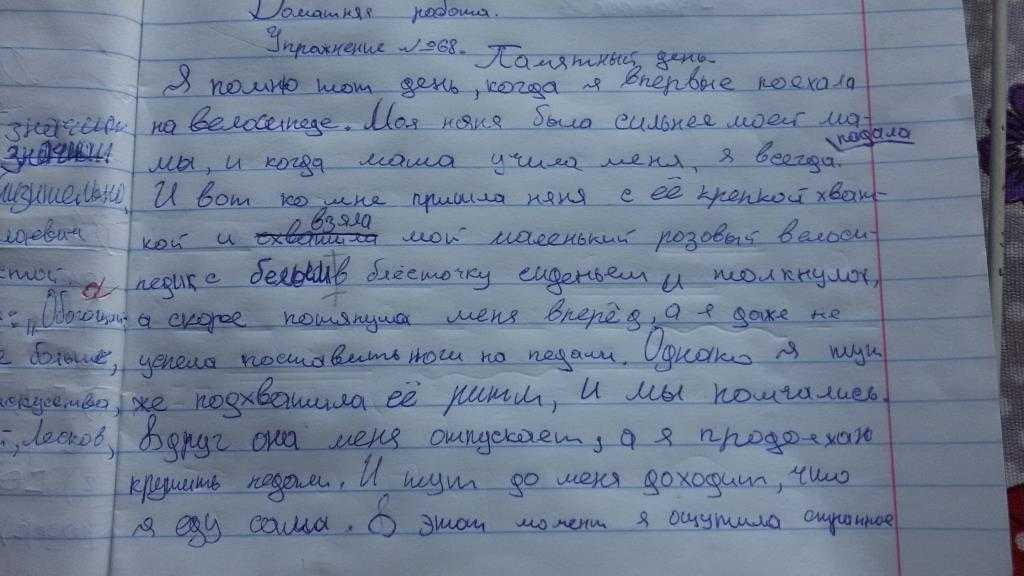 Домашняя работа.
Упражнение №968.
Памятный день.
Я помню тот день, когда я впервые поехала
на велосипеде. Моя няня была сильнее моей ма-
мы, и когда мама учила меня, я всегда падала.
И вот ко мне пришла няня с её крепкой хват-
кой и схватила взяла мой маленький розовый велоси-
педик с белым в блёсточку сиденьем и толкнула,
а скорее потянула меня вперёд, а я даже не
успела поставить ноги на педали. Однако я тут
же подхватила её ритм, и мы помчались.
Вдруг она меня отпускает, а я продолжаю
крутить педали. И тут до меня доходит, что
я еду сама. В этот момент я ощутила странное
лаевич
больше,
искусства,
Лесков,